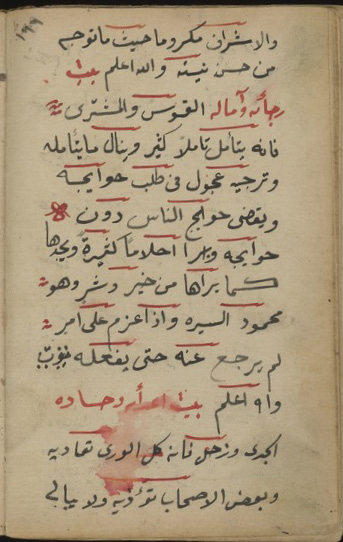 والاشراف مكروما حيث ما توجه
من حسن نيته والله اعلم بيت
رجائه وآماله القوس والمشترى
فانه يتأمل تاملا كثير وينال ما يتأمله
وترجيه عجول فى طلب حوايجه
ويقضى حوايج الناس دون
حوايجه ويرا احلاما كثيرة ويجدها
كما يراها من خير وشر وهو
محمود السيره واذا عزم على امر
لم يرجع عنه حتى يفعله
والله اعلم بيت اعدائه وحساده
الجدى وزحل فانه كل الورى تعاديه
وبعض الاصحاب تؤذيه ولا يبالى